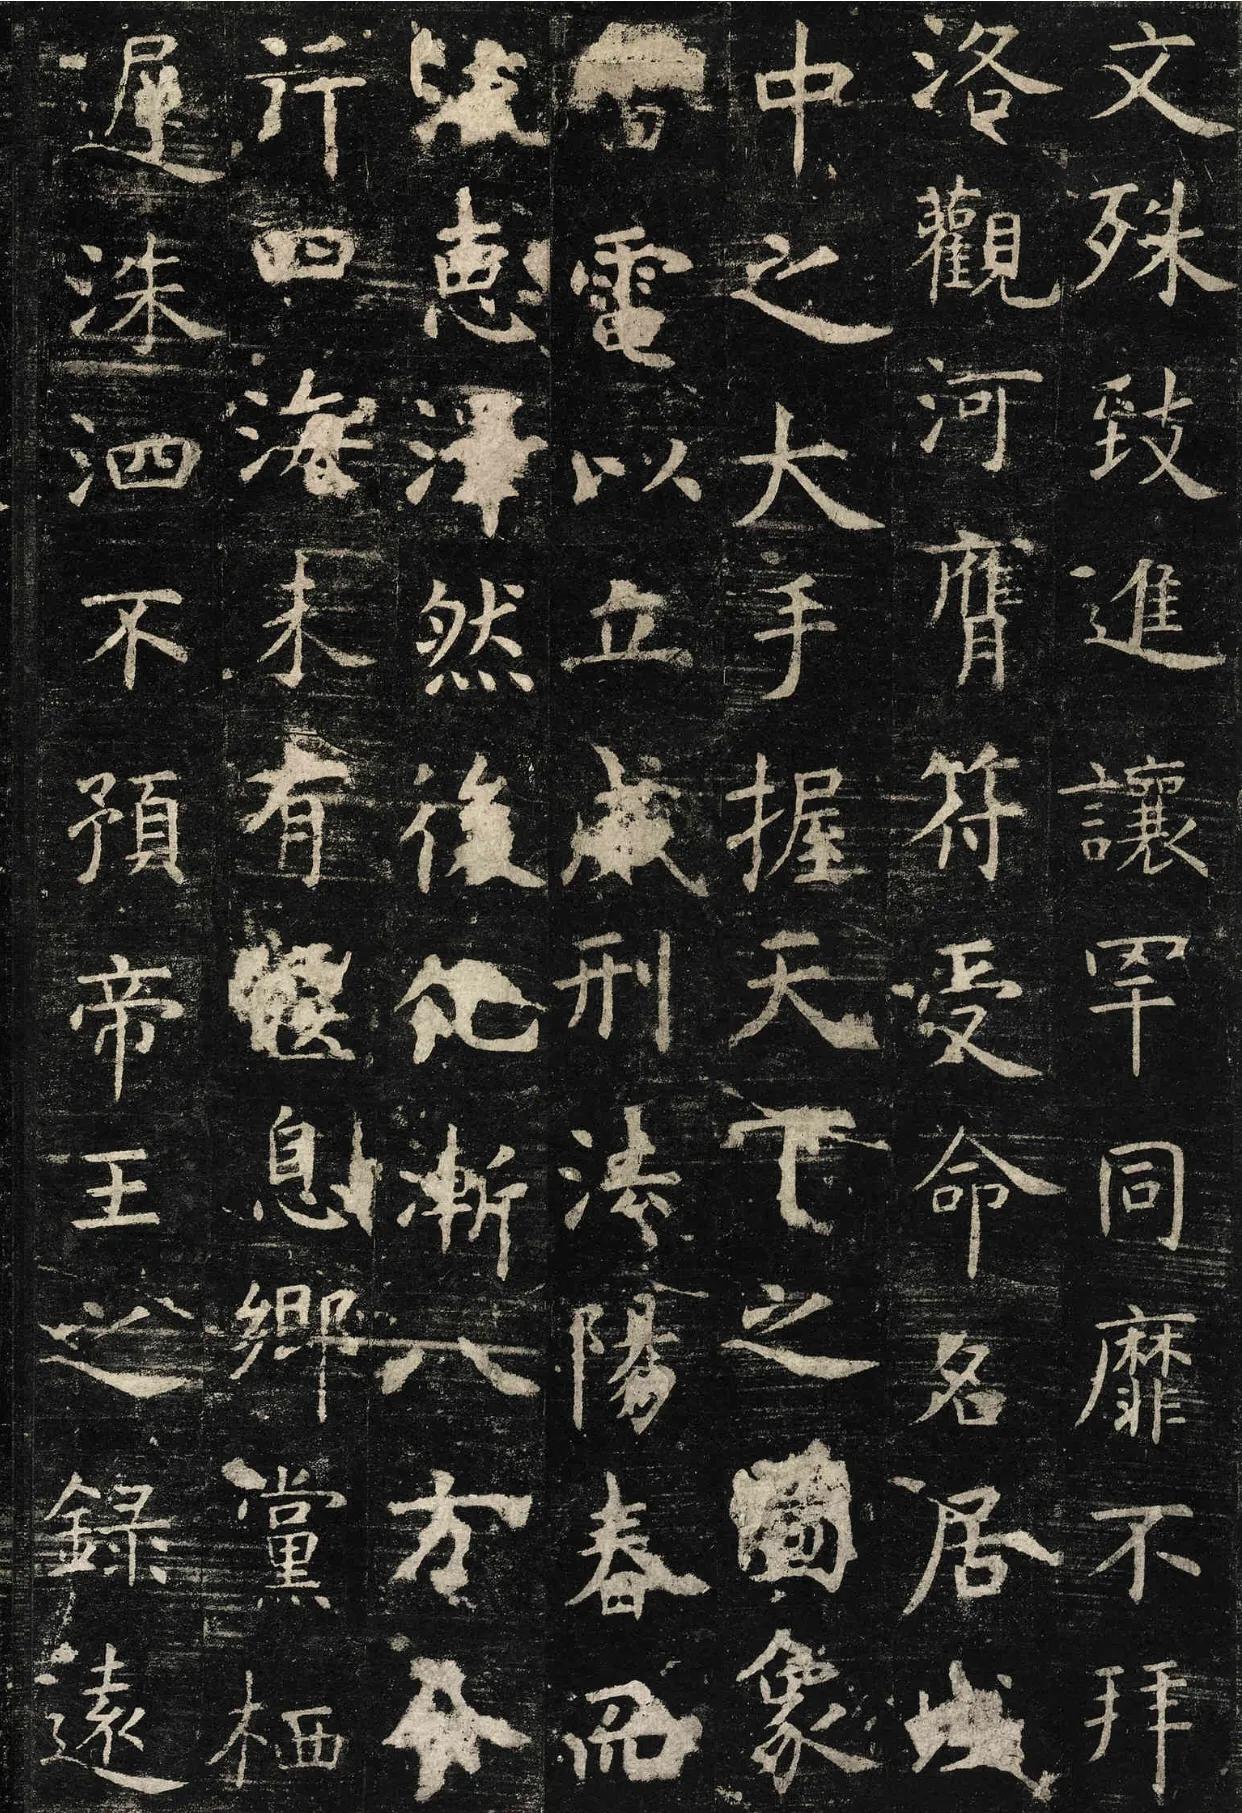 文殊致進讓罕同靡不拜
洛觀河膺符受命名居域
中之大手握天下之圖象
雷電以立威刑法陽春而
流惠澤然後化漸八方令
行四海未有偃息鄉黨栖
遟洙泗不預帝王之錄遠